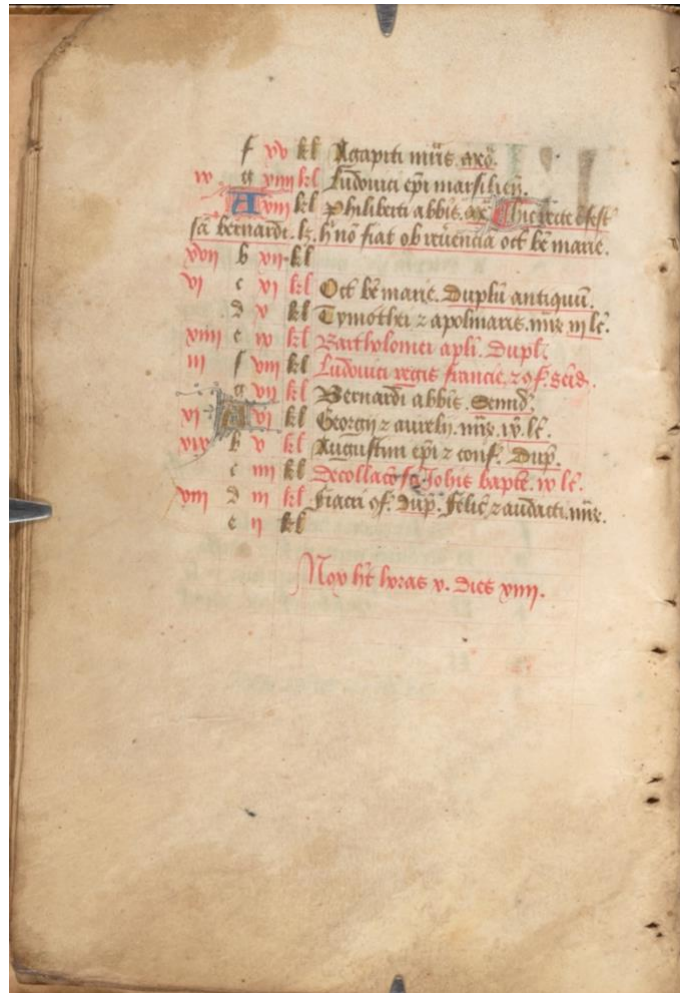 f xv kl Agapiti mris. oro.
iv g xiiii kl Ludovici epi marsilien.
A xiii kl Philiberti abbis. oro Hic recte e fest
sci bernardi. lz. h no fiat ob reverencia oct be marie.
xvii b xii kl
vi c xi kl Oct be marie. Duplu antiquu.
d x kl Tymothei z apolinaris. mris iij lc.
xiiii e ix kl Bartholomei apli. Dupl.
iii f viii kl Ludovici regis francie, z of. scid.
g vii kl Bernardi abbis. Semid.
xi A vi kl Georgij z aurelij. mris. iv. lc.
xix b v kl Augustini epi z conf. Dup.
c iiii kl Decollaco sci Johis bapte. iv lc.
viii d iii kl Fiacri of. Dup. Felic z audacti. mris.
e ii kl
Nox ht horas x. Dies xiiii.